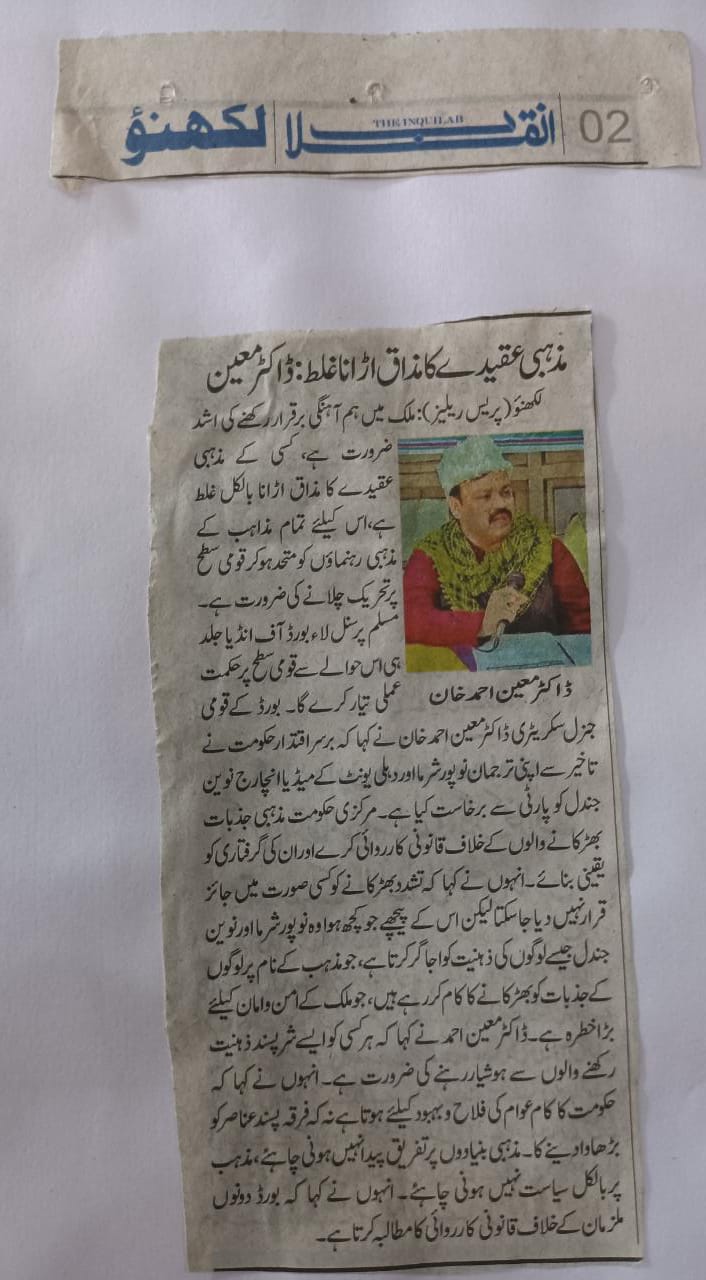 02 انقلاب لکھنؤ
THE INQUILAB
مذہبی عقیدے کا مذاق اڑانا غلط: ڈاکٹر معین
لکھنؤ (پریس ریلیز): ملک میں ہم آہنگی برقرار رکھنے کی اشد
ضرورت ہے، کسی کے مذہبی
عقیدے کا مذاق اڑانا بالکل غلط
ہے، اس کیلئے تمام مذاہب کے
مذہبی رہنماؤں کو متحد ہو کر قومی سطح
پر تحریک چلانے کی ضرورت ہے۔
مسلم پرسنل لاء بورڈ آف انڈیا جلد
ہی اس حوالے سے قومی سطح پر حکمت
عملی تیار کرے گا۔ بورڈ کے قومی
ڈاکٹر معین احمد خان
جنرل سکریٹری ڈاکٹر معین احمد خان نے کہا کہ برسر اقتدار حکومت نے
تاخیر سے اپنی ترجمان نوپور شرما اور دہلی یونٹ کے میڈیا انچارج نوین
جندل کو پارٹی سے برخاست کیا ہے۔ مرکزی حکومت مذہبی جذبات
بھڑکانے والوں کے خلاف قانونی کارروائی کرے اور ان کی گرفتاری کو
یقینی بنائے۔ انہوں نے کہا کہ تشدد بھڑکانے کو کسی صورت میں جائز
قرار نہیں دیا جا سکتا لیکن اس کے پیچھے جو کچھ ہوا وہ نوپور شرما اور نوین
جندل جیسے لوگوں کی ذہنیت کو اجاگر کرتا ہے، جو مذہب کے نام پر لوگوں
کے جذبات کو بھڑکانے کا کام کر رہے ہیں، جو ملک کے امن و امان کیلئے
بڑا خطرہ ہے۔ ڈاکٹر معین احمد نے کہا کہ ہر کسی کو ایسے شر پسند ذہنیت
رکھنے والوں سے ہوشیار رہنے کی ضرورت ہے۔ انہوں نے کہا کہ
حکومت کا کام عوام کی فلاح و بہبود کیلئے ہوتا ہے نہ کہ فرقہ پسند عناصر کو
بڑھاوا دینے کا۔ مذہبی بنیادوں پر تفریق پیدا نہیں ہونی چاہئے، مذہب
پر بالکل سیاست نہیں ہونی چاہئے۔ انہوں نے کہا کہ بورڈ دونوں
ملزمان کے خلاف قانونی کارروائی کا مطالبہ کرتا ہے۔